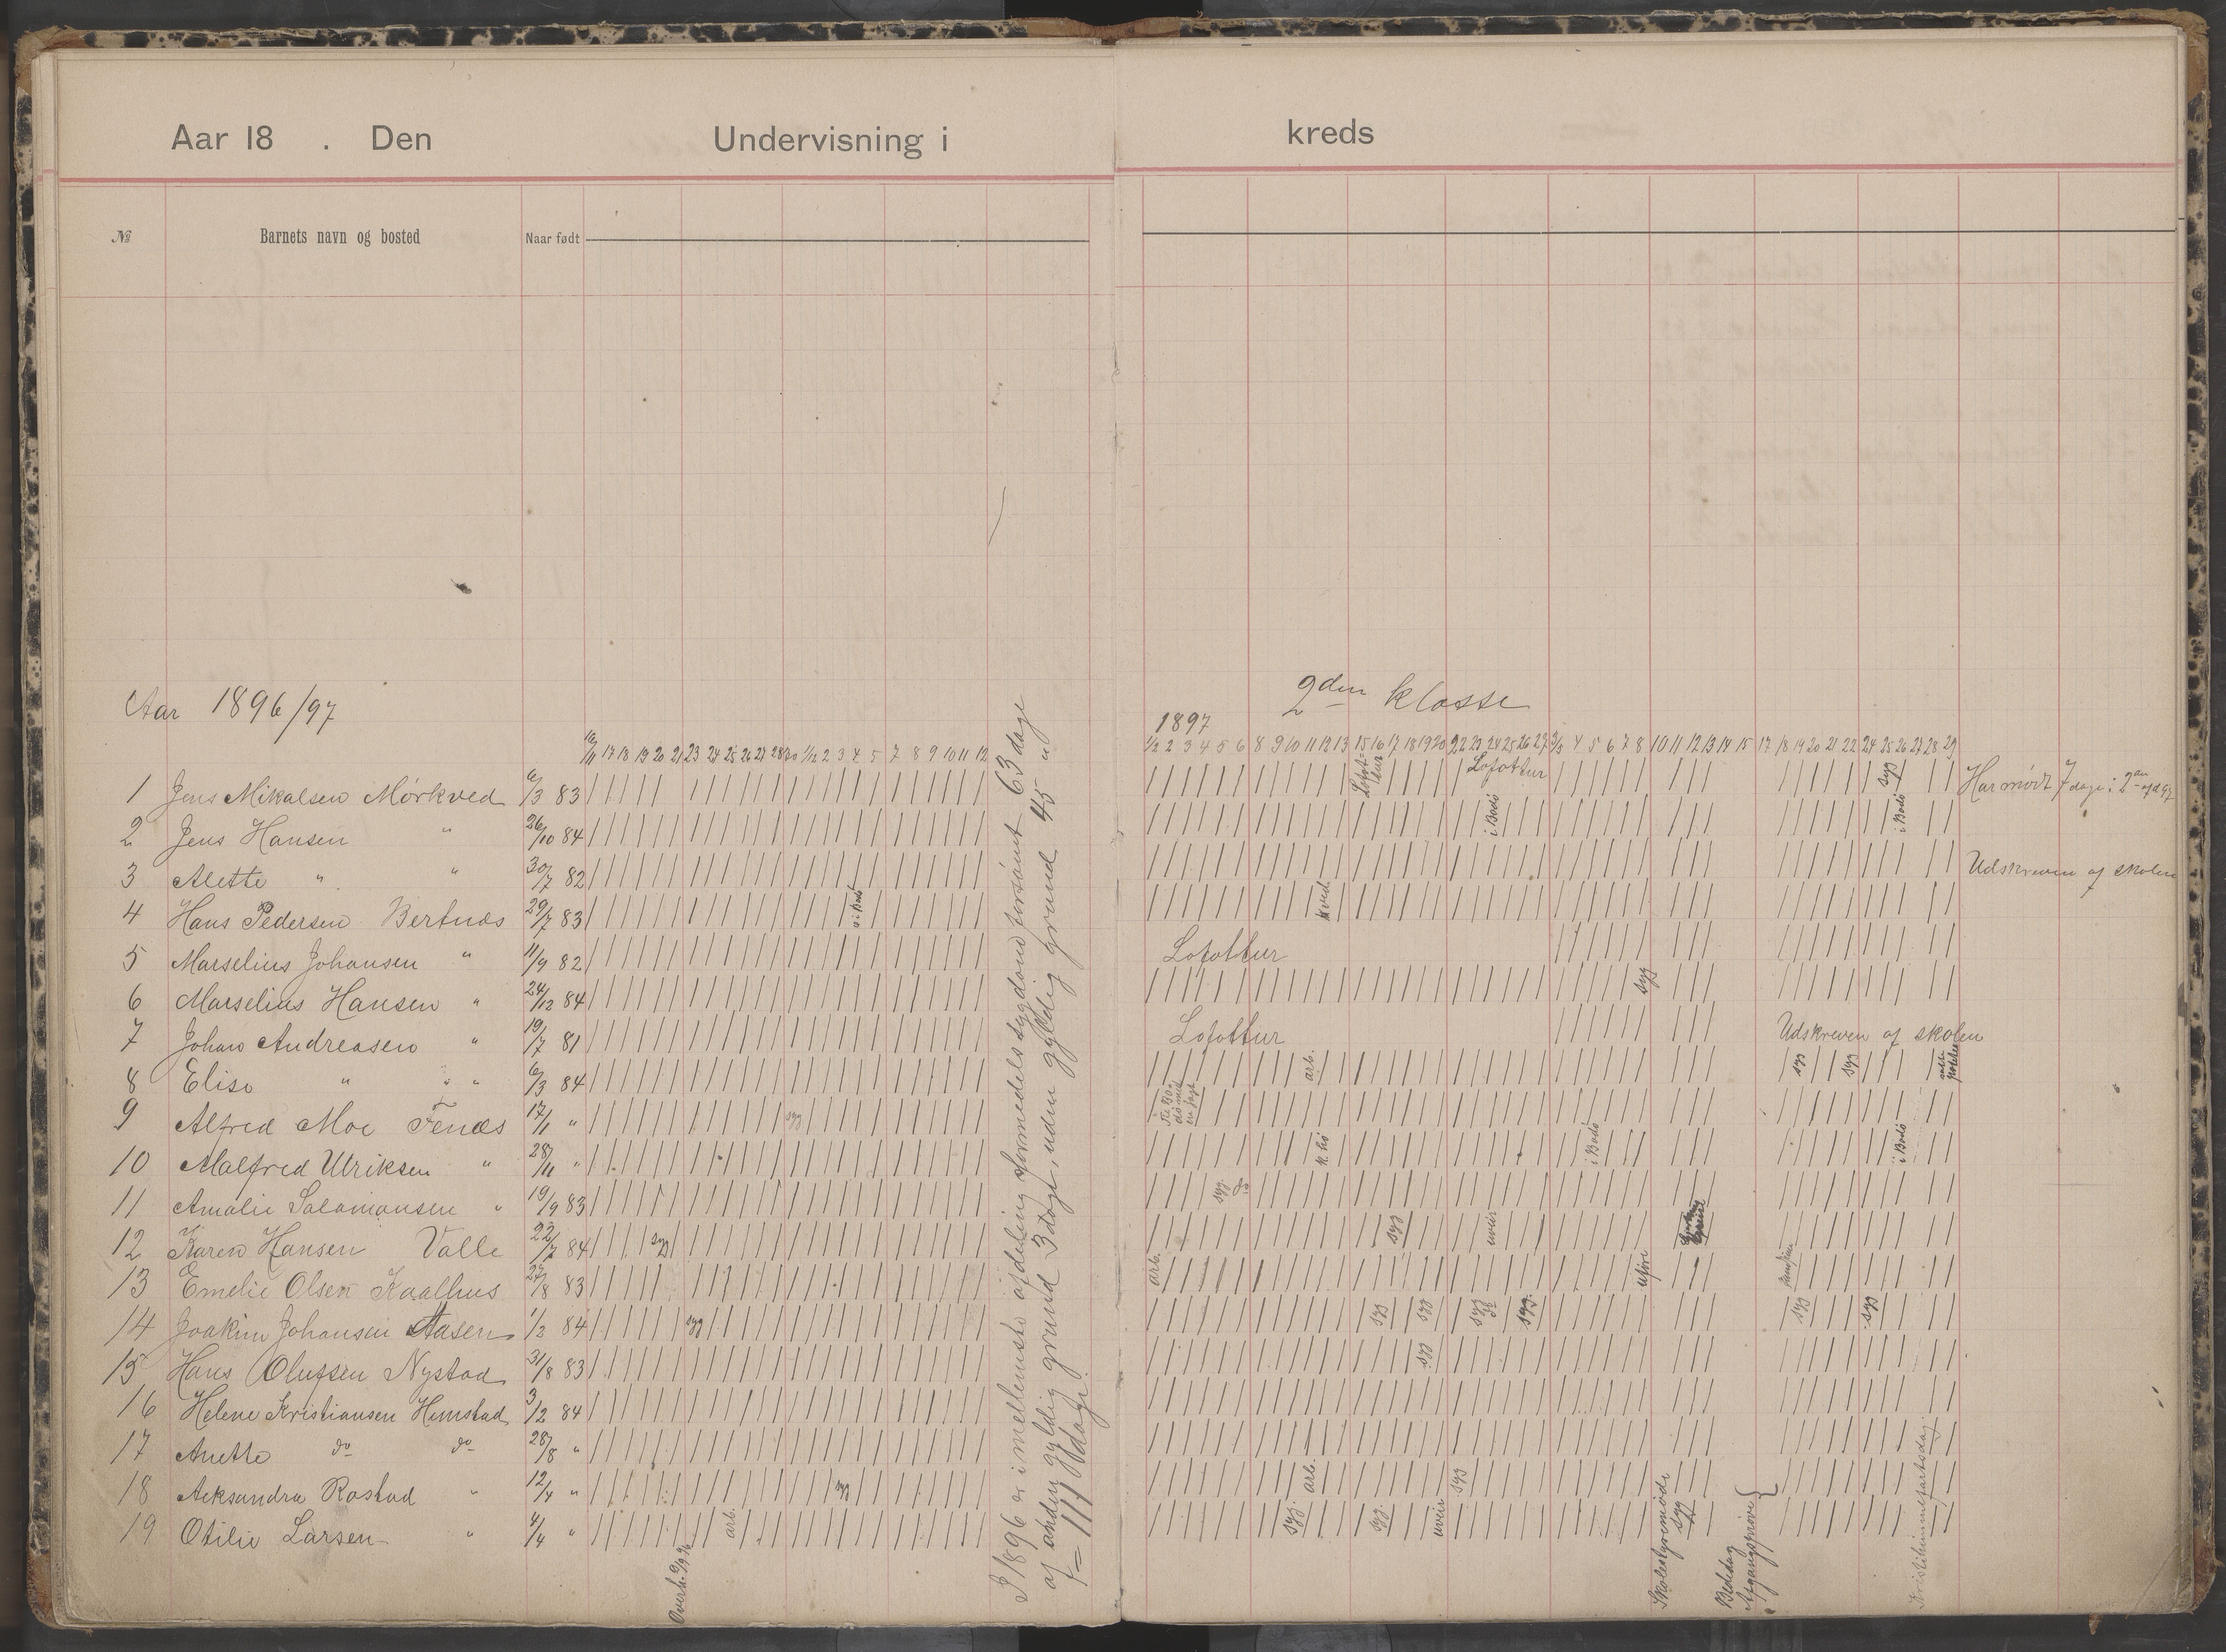 Aar 18 . Den Undervisning i kreds
№ Barnets navn og bosted Naar født
Aar 1896/97
2den klasse
1897
16/11 17 18 19 20 21 23 24 25 26 27 28 30 1/12 2 3 4 5 7 8 9 10 11 12
1/2 2 3 4 5 6 8 9 10 11 12 13 15 16 17 18 19 20 22 23 24 25 26 27 3/5 4 5 6 7 8 10 11 12 13 14 15 17 18 19 20 21 22 24 25 26 27 28 29
1 Jens Mikalsen Mörkved 6/3 83 Lofottur Lofottur syg Har mödt 7 dage i 2an afd 97
2 Jens Hansen " 26/10 84 i Bodö i Bodö
3 Alette " " 30/7 82 Udskreven af skolen
4 Hans Pedersen Bertnæs 29/7 83 i Bodö
5 Marselius Johansen " 11/9 82 Lofottur
6 Marselius Hansen " 24/12 84 syg
7 Johan Andreasen " 19/7 81 Lofottur Udskreven af skolen
8 Elise " " " 6/3 84 arb. syg syg
9 Alfred Moe Fenæs 17/1 " syg
10 Malfred Ulriksen " 28/11 " i Bodö i Bodö
11 Amalie Salamonsen " 19/9 83 syg do
12 Karen Hansen Valle 22/7 84 syg syg uveir
13 Emelie Olsen Kaalhus 27/8 83 arb. uföre
14 Joakim Johansen Aasen 1/2 84 syg syg syg syg do syg syg syg
15 Hans Olufsen Nystad 31/8 83 syg
16 Helene Kristiansen Hunstad 3/2 84
17 Anette do do 28/8 "
18 Aeksandra Rostad " 12/4 " syg arb. syg
19 Otilie Larsen " 4/4 " arb. syg. syg. uveir syg
I 1896 er i mellemste afdeling formedels sygdom forsömt 63 dage
af anden gyldig grund 3 dage, uden gyldig grund 45 "
= 111 dage.
Skolestyremöde
Bededag
Afgangspröve }
Kristihimmelfartsdag